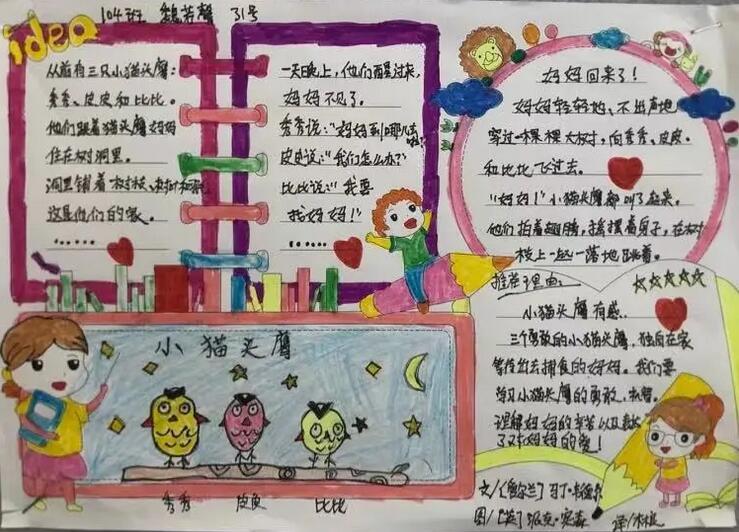 104班 魏若馨 31号
idea
从前有三只小猫头鹰:
秀秀、皮皮和比比。
他们跟着猫头鹰妈妈
住在树洞里。
洞里铺着树枝、树叶和
这是他们的家。
……
一天晚上,他们醒过来,
妈妈不见了。
秀秀说:“妈妈到哪儿去啦?”
皮皮说:“我们怎么办?”
比比说:“我要
找妈妈!”
……
妈妈回来了!
妈妈轻轻地、不出声地
穿过一棵棵大树,向秀秀、皮皮、
和比比飞过去。
“妈妈!”小猫头鹰都叫了起来。
他们拍着翅膀,摇摆着身子,在树
枝上一起一落地跳着。
小猫头鹰
秀秀 皮皮 比比
推荐理由:
小猫头鹰有感
三个勇敢的小猫头鹰,独自在家
等待出去捕食的妈妈。我们要
学习小猫头鹰的勇敢、
理解妈妈的辛苦以及
了对妈妈的爱!
文/〔爱尔兰〕马丁·韦德尔
图/〔英〕派克·宾森 译/林良